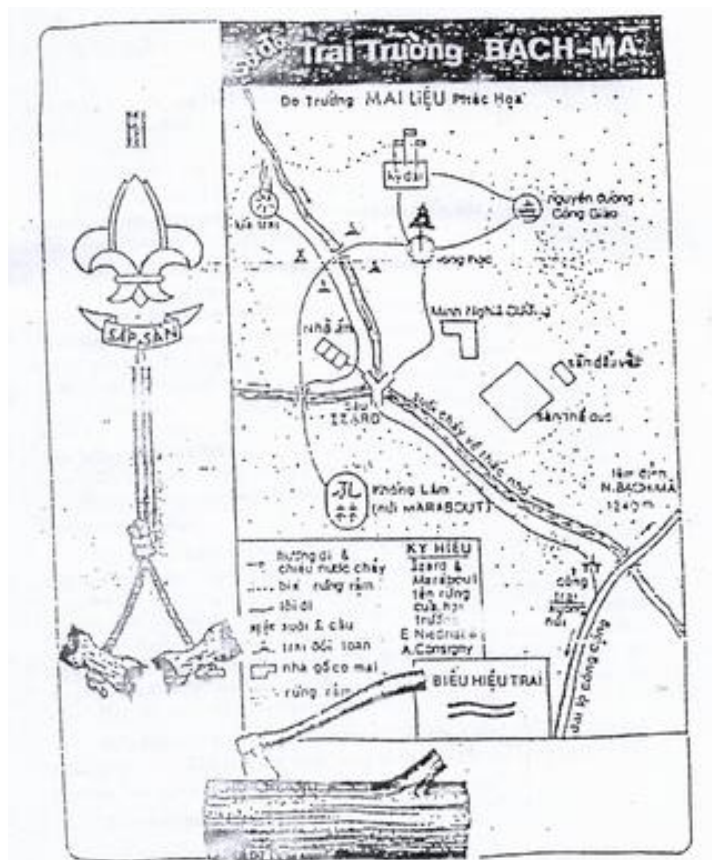 Trại Trường BẠCH-MÃ
Do Trưởng MAI LIỆU Phác Họa
kỳ đài
Nguyện đường
Công Giáo
lửa trại
vòng học
Minh Nghĩa Đường
Nhà ăn
sân đấu vật
sân thể dục
Cầu
IZARD
Suối chảy về thác nhỏ
lên đỉnh
N. BẠCHMÃ
Khổng Lâm
(núi MARABOUT)
cổng
trại
xuống
núi
đại lộ công cộng
SẮP SẴN
hướng đi &
chiều nước chảy
bìa rừng rậm
lối đi
suối & cầu
trại đội toán
nhà gỗ có mái
rừng rậm
KÝ HIỆU
Izard &
Marabout
tên rừng
của hai
trưởng
A. Consigny
BIỂU HIỆU TRẠI